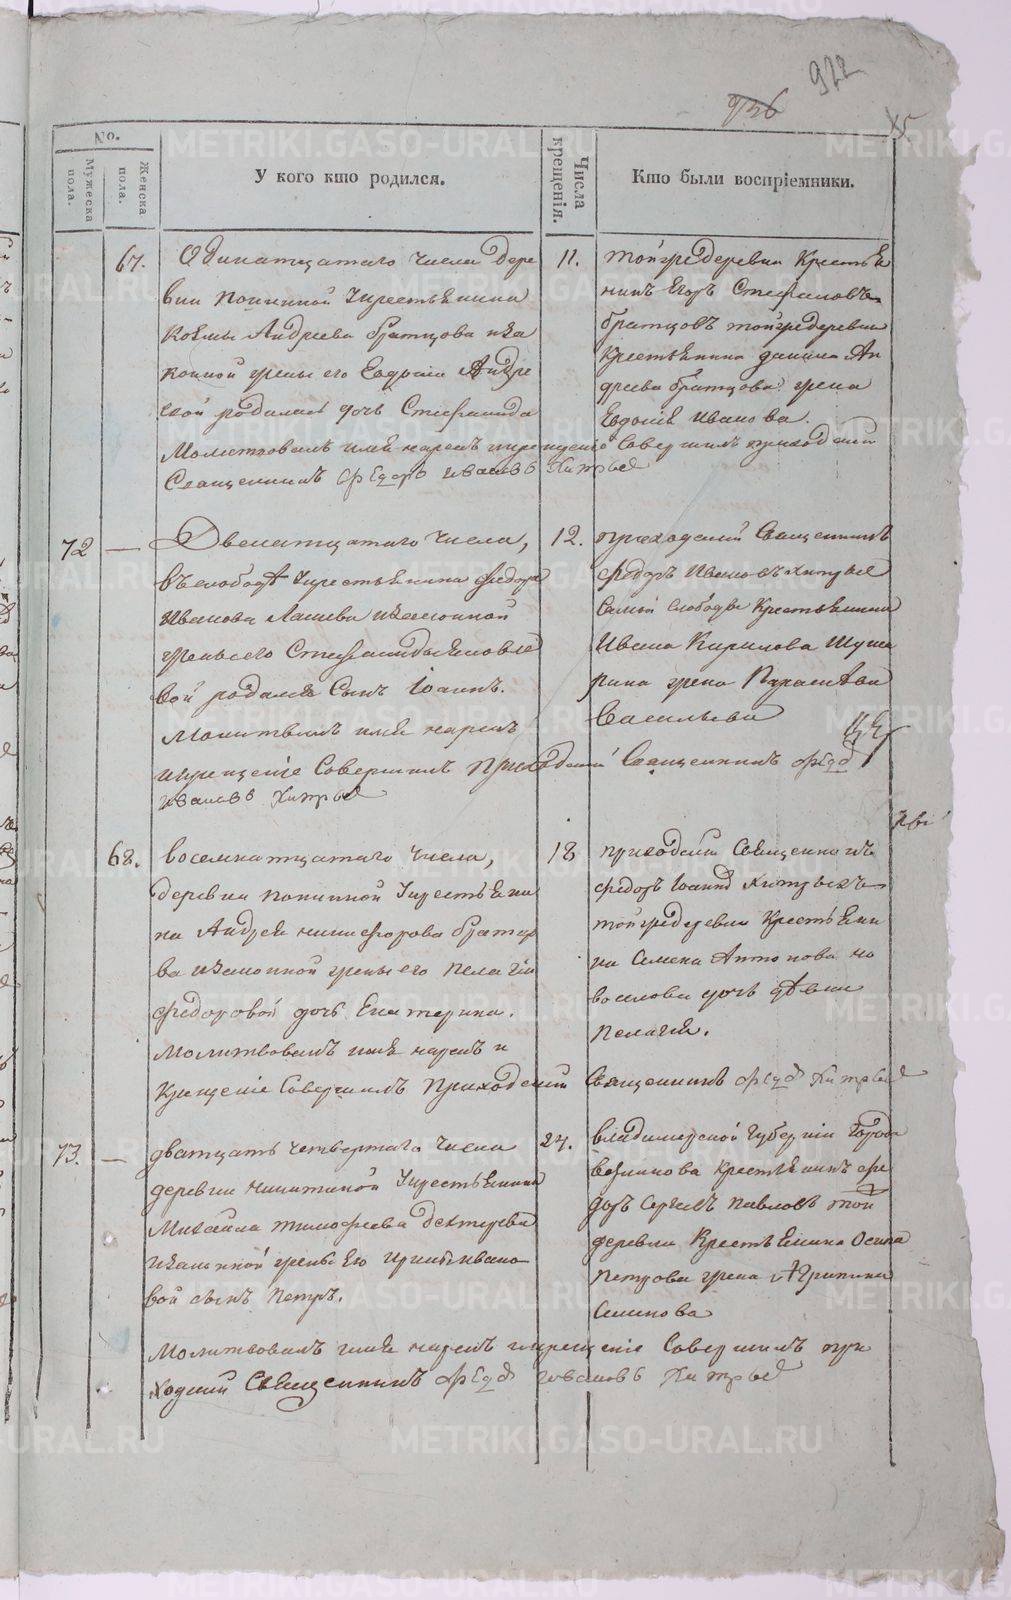 922
956
No.
Мужеска пола.
Женска пола.
У кого кто родился.
Числа крещенія.
Кто были воспріемники.
67.
Одинатцатаго числа дере
вни Попиной Крестьянина
Козмы Андреева братцова иза
конной жены его Евдокіи Андре
евой родилась дочь Стефанида
Молитвовалъ имя нарекъ икрещеніе Совершилъ приходскій
Священникъ Федоръ Ивановъ Хитрыхъ
11.
тойже деревни Крестья
нинъ Егоръ Стефановъ
братцовъ тойже деревни
крестьянина данила Ан
дреева братцова жена
Евдокія Иванова.
72
Двенатцатаго числа,
въ слободѣ Крестьянина Федора
Иванова Лашева изаконной
жены его Стефаниды Яковле
вой родился Сынъ Іоаннъ.
Молитвовалъ имя нарекъ
икрещеніе Совершилъ Приходскій Священникъ Федоръ
Ивановъ Хитрыхъ
12.
приходскій Священникъ
Федоръ Ивановъ Хитрыхъ
самой слободы Крестьянина
Ивана Кирилова Шуша
рина жена Параскева
Васильева
68.
восемнатцатаго числа,
деревни Попиной Крестьяни
на Андрея никифорова братцо
ва изаконной жены его Пелагіи
федоровой дочь Екатерина.
Молитвовалъ имя нарекъ и
Крещеніе Совершилъ Приходскій Священникъ Федоръ Хитрыхъ
18
приходскій Священникъ
Федоръ Іоанновъ Хитрыхъ
тойже деревни Крестьяни
на Семена Антонова но
воселова дочь дѣвка
Пелагія.
73.
дватцать четвертаго числа
деревни никитиной Крестьянина
Михаила тимофеева дехтерева
изаконной жены его Ирины ивано
вой сынъ Петръ.
Молитвовалъ имя нарекъ икрещеніе Совершилъ при
ходскій Священникъ Федоръ Ивановъ Хитрыхъ
24.
владимерской Губерніи Города
вязникова крестьянинъ Фе
доръ Сергеевъ Павловъ той
деревни Крестьянина Осипа
Петрова жена Агрипина
Семенова
METRIKI.GASO-URAL.RU